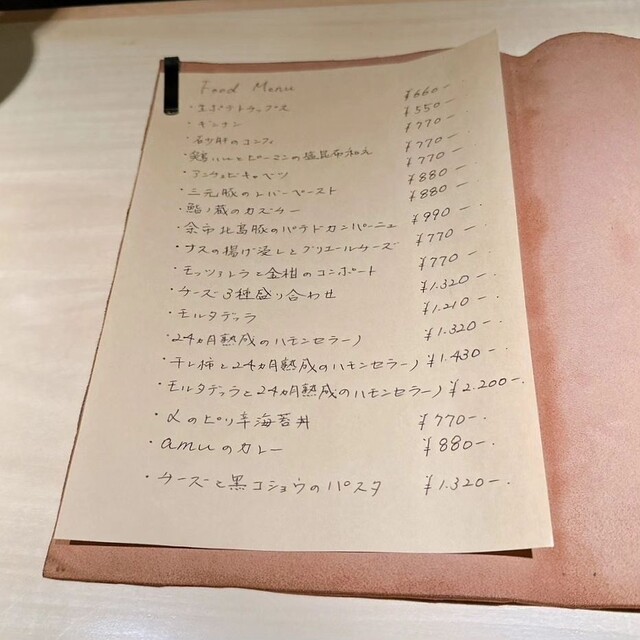 Food Menu
・エポテトラップス ¥660-
・ギンナン ¥550-
・砂肝のコンフィ ¥770-
・鶏ハムとピーマンの塩昆布和え ¥770-
・アンチョビキャベツ ¥770-
・三元豚のレバーペースト ¥880-
・鮨ノ蔵のカズチー ¥880-
・余市北島豚のパテドカンパーニュ ¥990-
・ナスの揚げ浸しとグリエールチーズ ¥770-
・モッツァレラと金柑のコンポート ¥770-
・チーズ3種盛り合わせ ¥1.320-
・モルタデッラ ¥1.210-
・24ヵ月熟成のハモンセラーノ ¥1.320-
・干し柿と24ヵ月熟成のハモンセラーノ ¥1.430-
・モルタデッラと24ヵ月熟成のハモンセラーノ ¥2.200-.
・〆のピリ辛海苔丼 ¥770-.
・amuのカレー ¥880-.
・チーズと黒コショウのパスタ ¥1.320-.